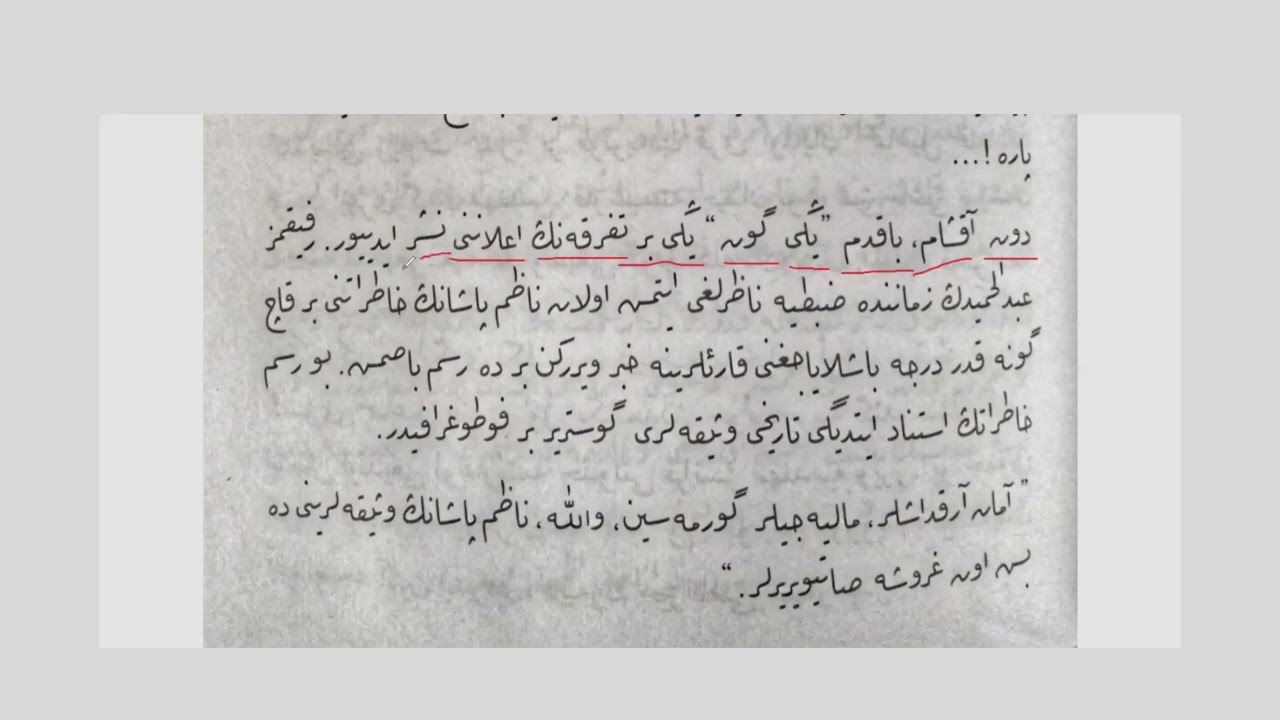 پاره !...
دون آقشام، باقدم ”یڭی گون“ یڭی بر تفرقه‌نڭ اعلاننی نشر ایدییور. رفیقمز
عبدالحمیدڭ زماننده ضبطیه ناظرلغی ایتمش اولان ناظم پاشانڭ خاطراتنی بر قاچ
گونه قدر درجه باشلایاجغنی قارئلرینه خبر ویررکن بر ده رسم باصمش. بو رسم
خاطراتڭ استناد ایتدیگی تاریخی وثیقه‌لری گوستریر بر فوطوغرافیدر.
”آمان آرقداشلر، مالیه‌جیلر گورمه‌سین، والله، ناظم پاشانڭ وثیقه‌لرینی ده
بش اون غروشه صاتیویریرلر.“